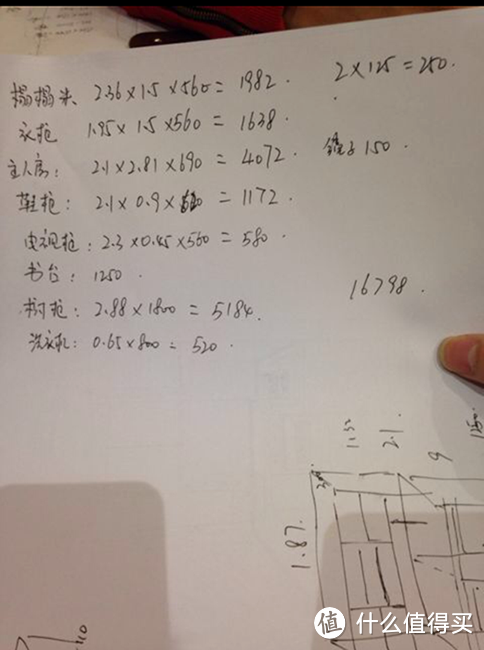 榻榻米 2.36×1.5×560=1982.
2×125=250.
衣柜 1.95×1.5×560=1638.
主人房: 2.1×2.81×690=4072.
镜子150.
鞋柜: 2.1×0.9× =1172.
电视柜: 2.3×0.45×560=580.
书台: 1250.
16798.
书柜: 2.88×1800=5184.
洗衣机: 0.65×800=520.
2.1
9
1.87
110
值 什么值得买